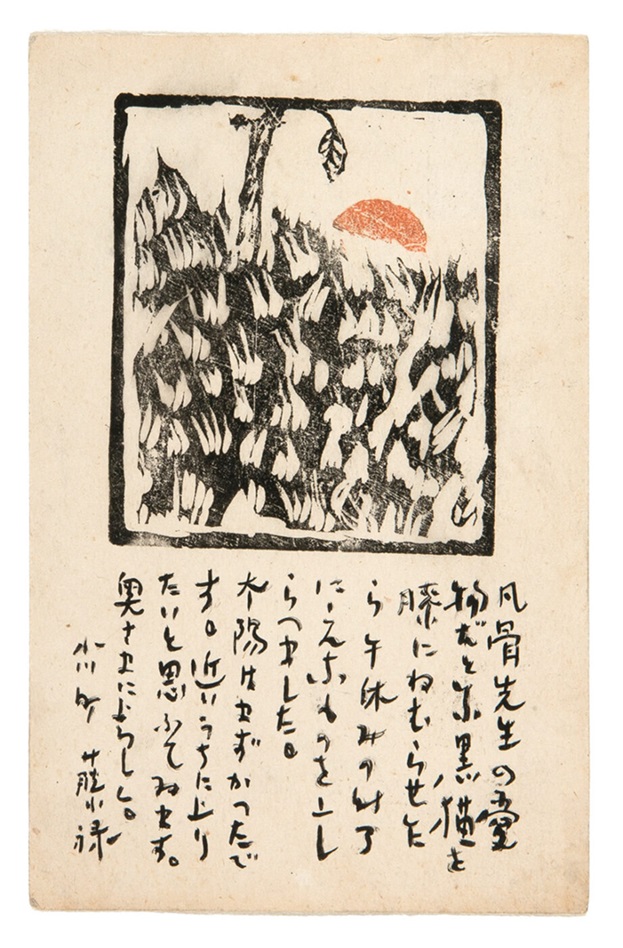 凡骨先生の
物だと云黒猫を
膝にねむらせた
ら午休みの
ものを上し
ました。
太陽はまずかつたで
す。近いうちに上り
たいと思ふてゐます。
奥さまによろしく。
小川町